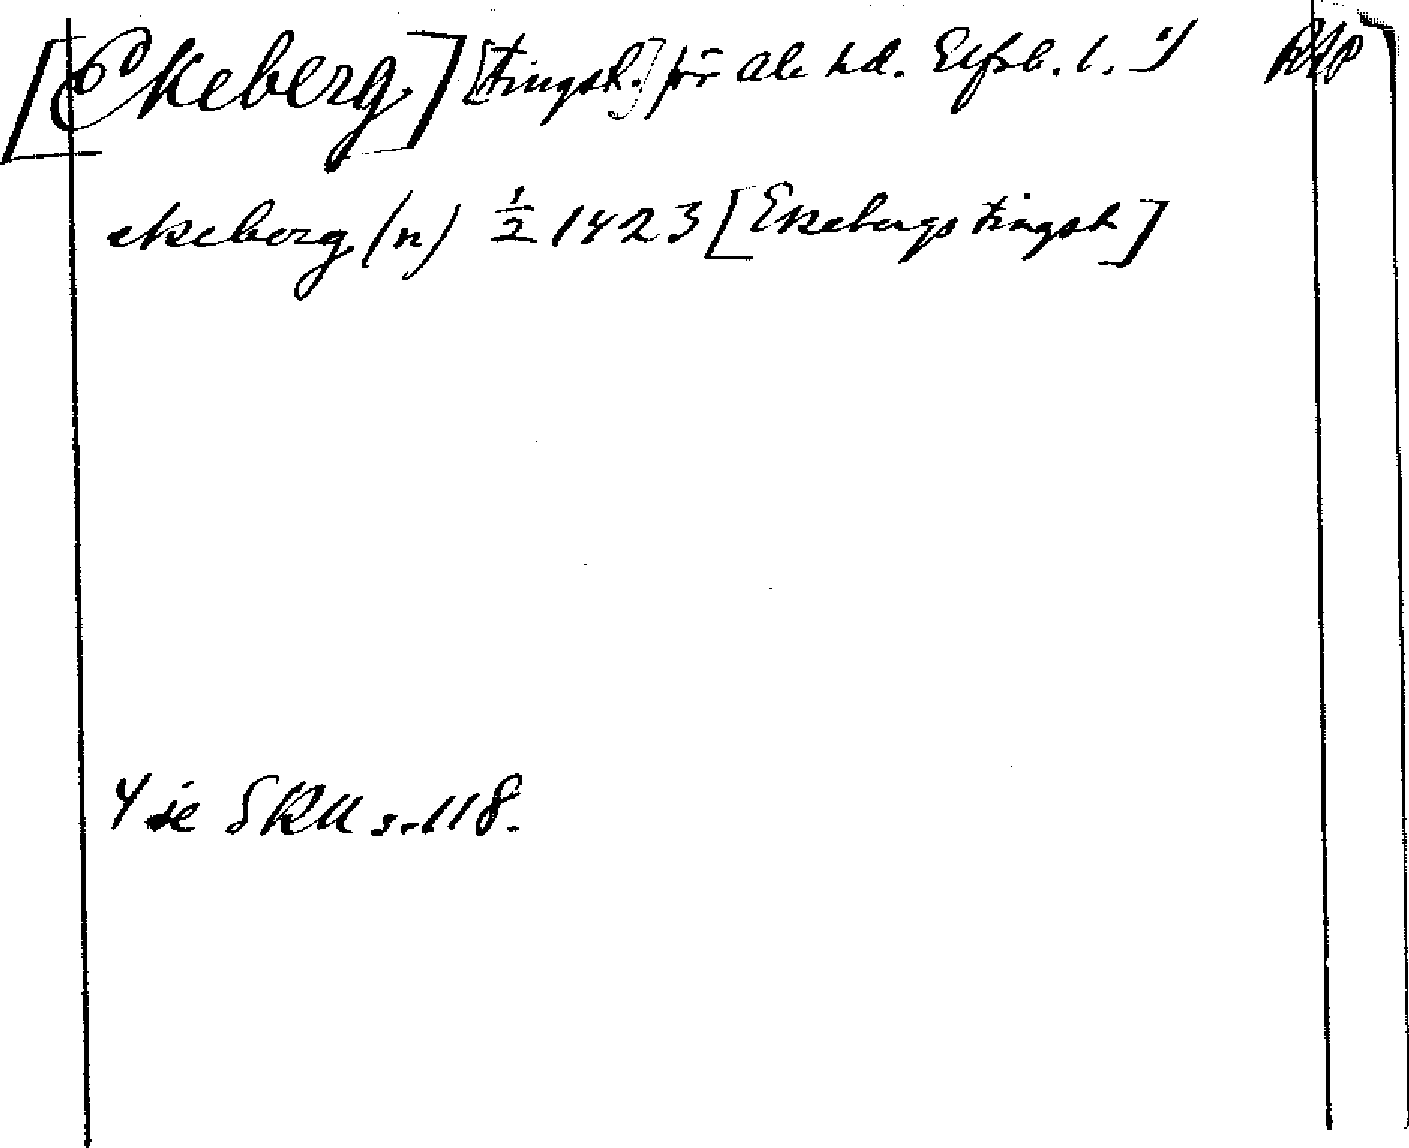 [Ekeberg] [tingsh.] för Ale hd. Elfsb. l. 1) RAp
ekeberg (n) 1/2 1423 [Ekebergs tingsh]
1) se SRU s. 118.